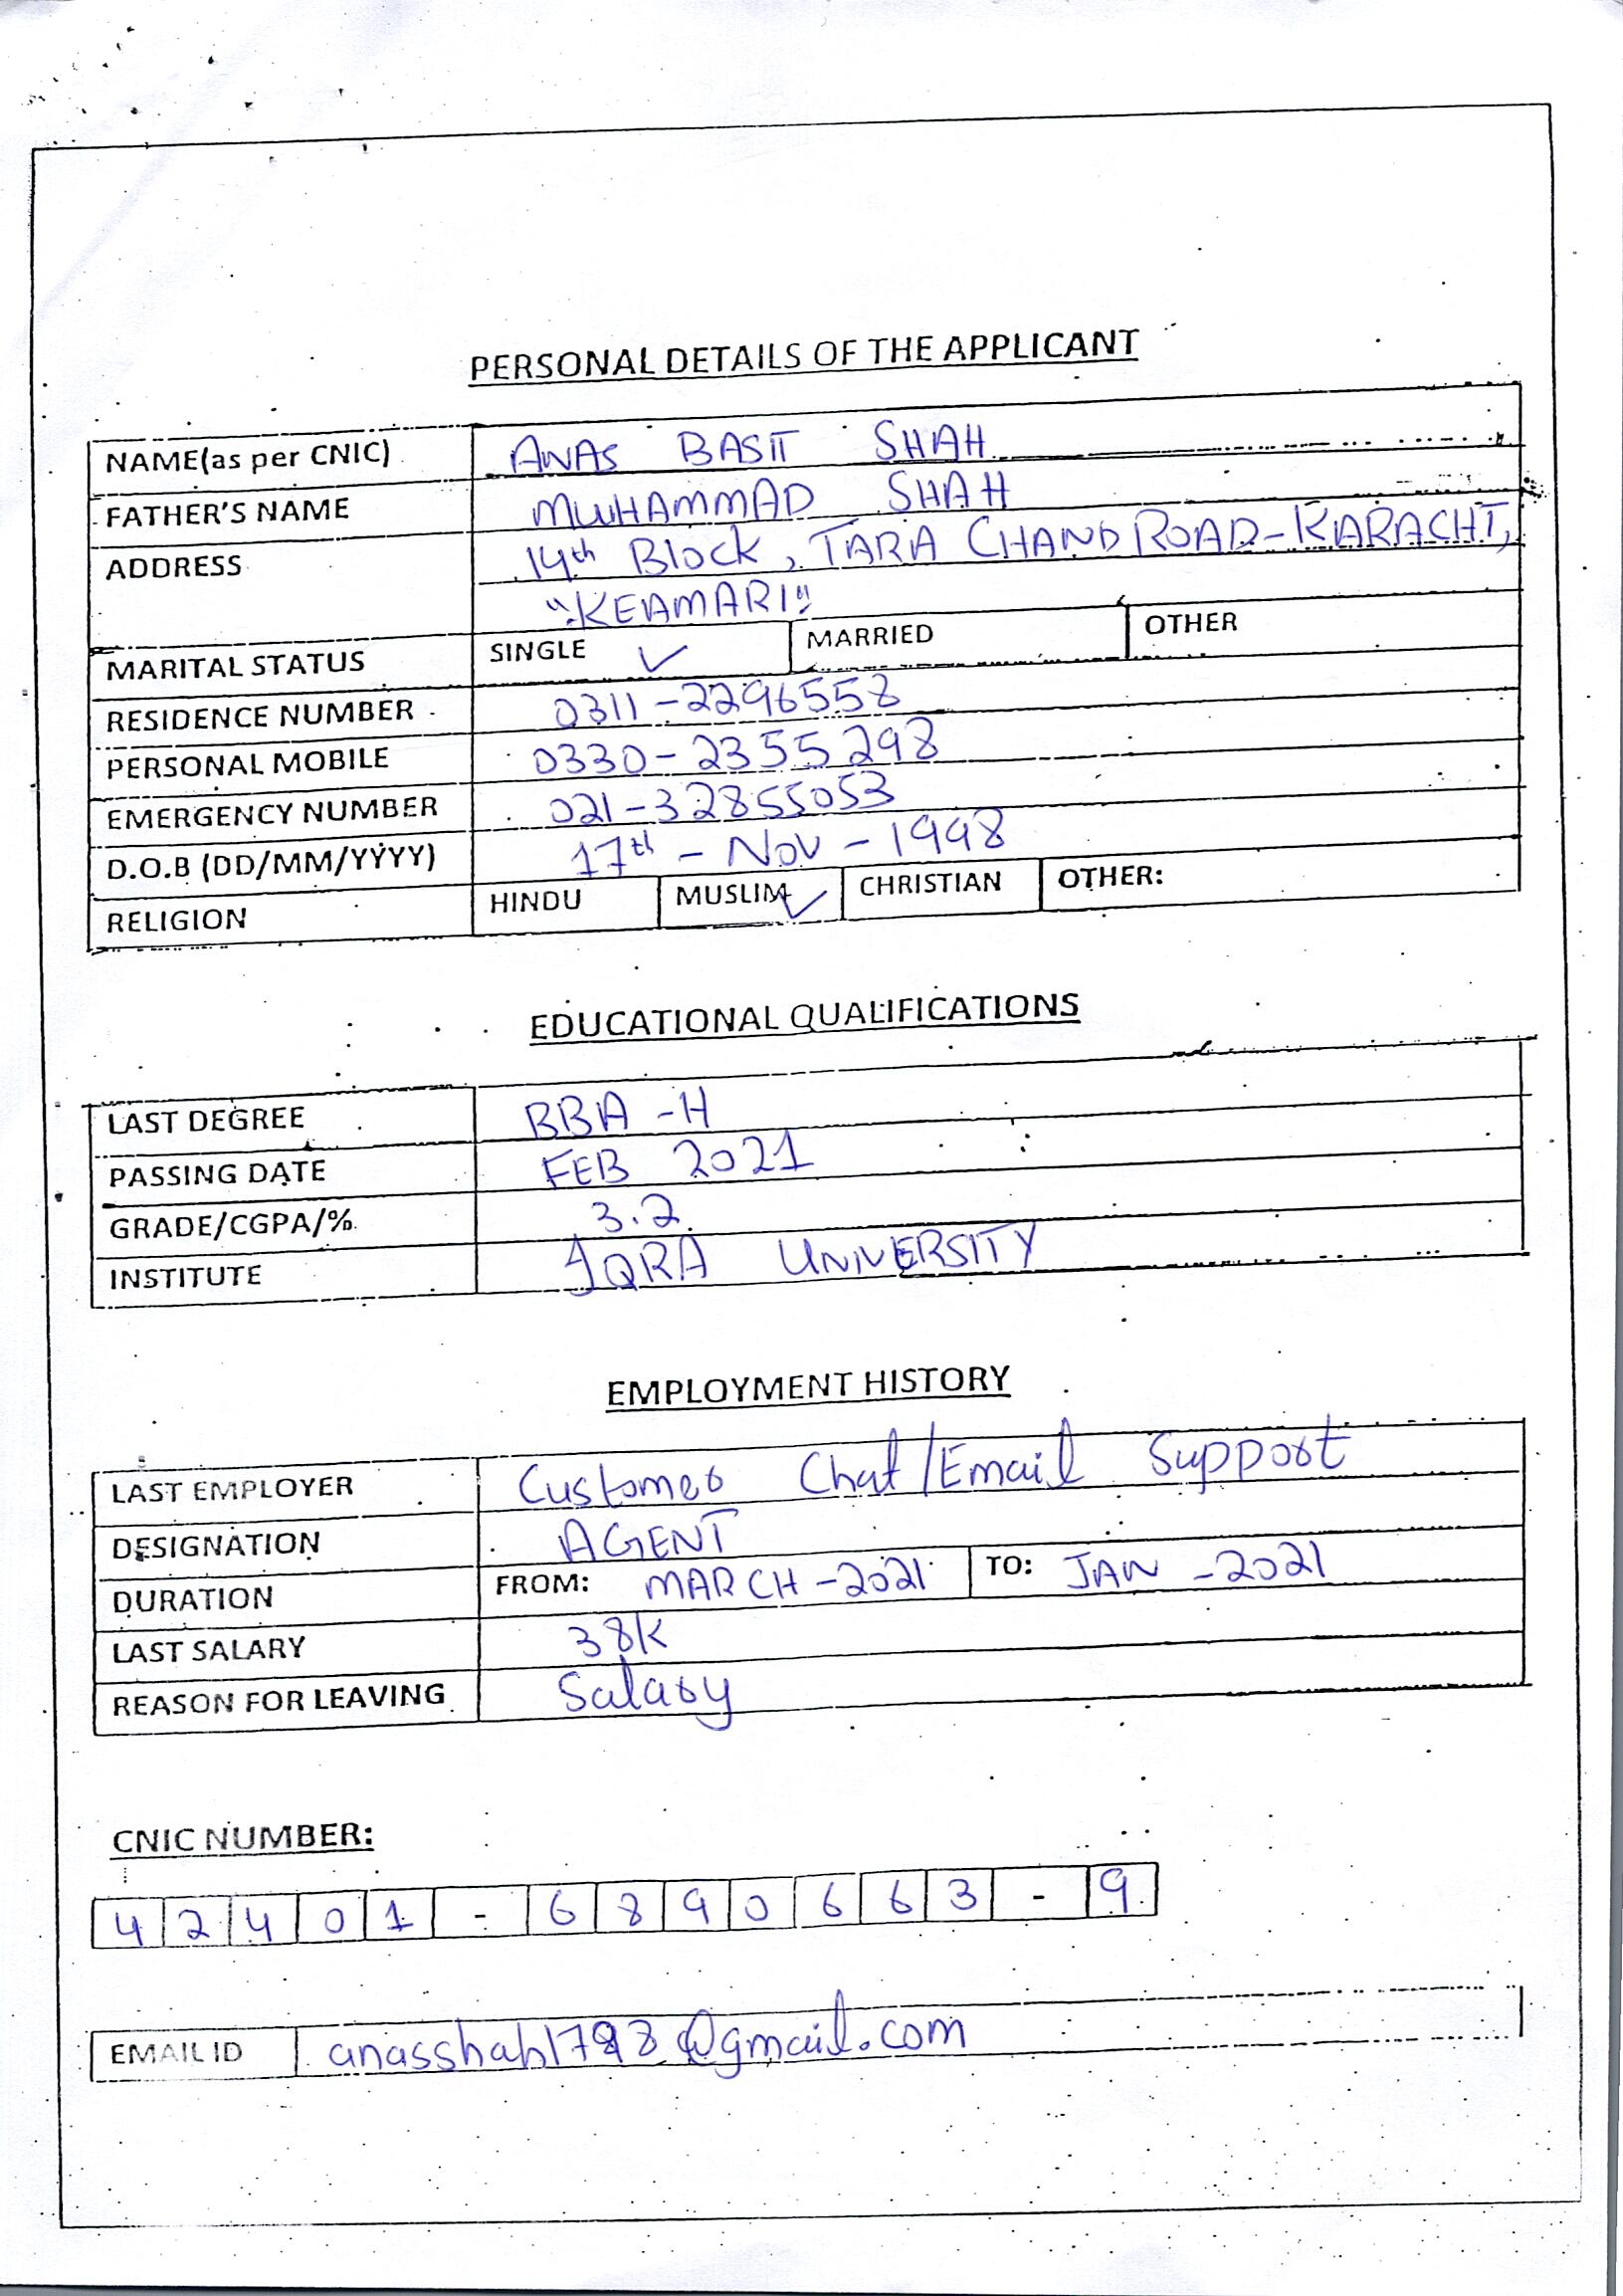 PERSONAL DETAILS OF THE APPLICANT
NAME(as per CNIC) ANAS BASIT SHAH
FATHER'S NAME MUHAMMAD SHAH
ADDRESS 14th Block, TARA CHAND ROAD-KARACHI,
"KEAMARI"
MARITAL STATUS SINGLE ✓ MARRIED OTHER
RESIDENCE NUMBER 0311-2296558
PERSONAL MOBILE 0330-2355298
EMERGENCY NUMBER 021-32855053
D.O.B (DD/MM/YYYY) 17th - Nov - 1998
RELIGION HINDU MUSLIM ✓ CHRISTIAN OTHER:
EDUCATIONAL QUALIFICATIONS
LAST DEGREE BBA -H
PASSING DATE FEB 2021
GRADE/CGPA/% 3.2
INSTITUTE IQRA UNIVERSITY
EMPLOYMENT HISTORY
LAST EMPLOYER Customer Chat/Email Support
DESIGNATION AGENT
DURATION FROM: MARCH-2021 TO: JAN -2021
LAST SALARY 38K
REASON FOR LEAVING Salary
CNIC NUMBER:
42401-6890663-9
EMAIL ID anasshah1798@gmail.com